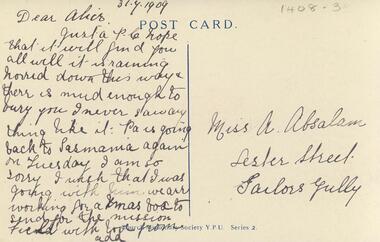 31.7.1909
1408-3
POST CARD.
Dear Alice.
Just a P C hope
that it will find you
all will it is raining
horred down this way &
therr is mud enough to
bury you I never saw any
thing like it. Pa is going
back to Tasmania again
on Tuesday I am so
sory I wish that I was
going with him. we are
working for a Xmas Box to
send for the mission
Field with love from
Ada
Miss A. Absalam
Lester Street
Sailors Gully
Society Y.P.U. Series 2.